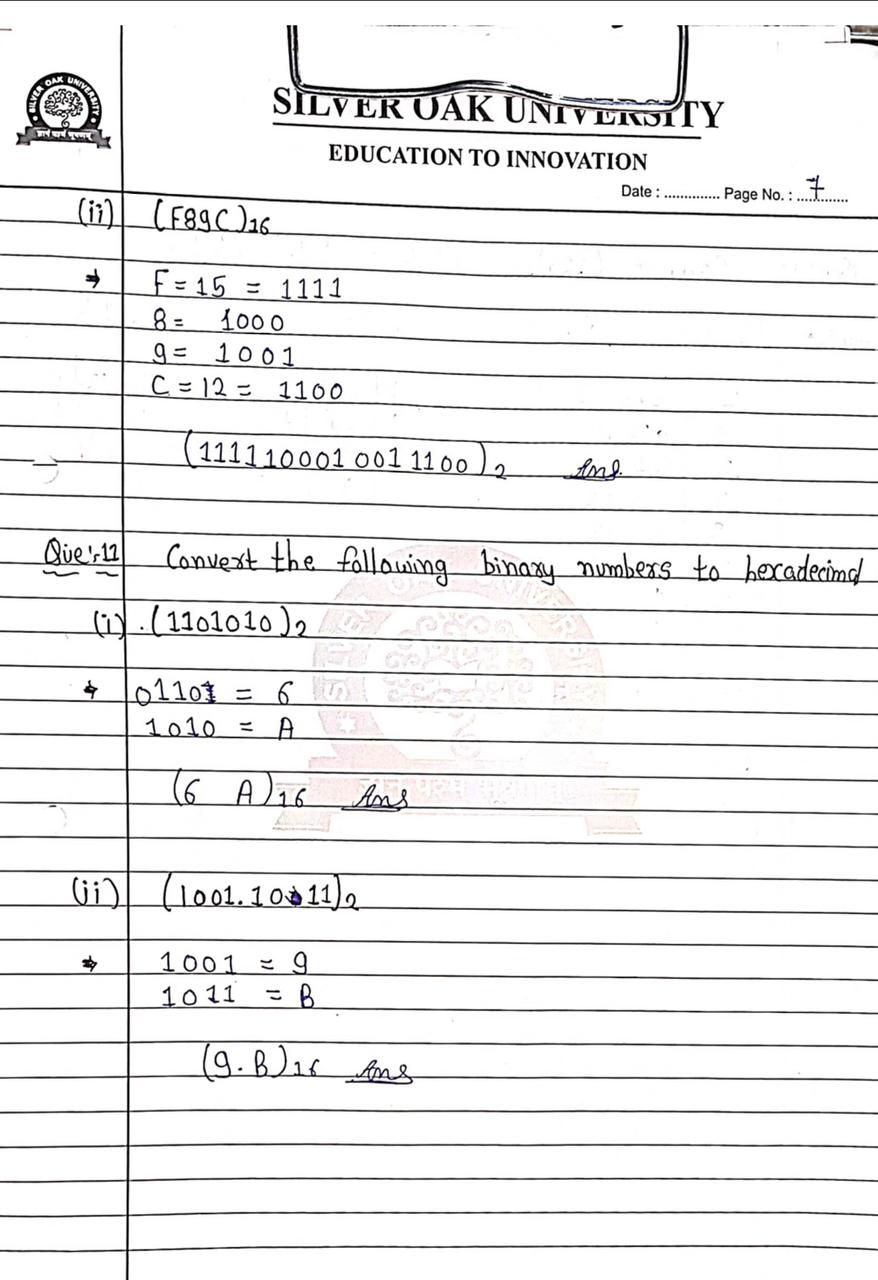 SILVER OAK UNIVERSITY
SILVER OAK UNIVERSITY
EDUCATION TO INNOVATION
Date : .............. Page No. : ....7.......
(ii) (F89C)16
⇒ F = 15 = 1111
8 = 1000
9 = 1001
C = 12 = 1100
(1111100010011100)2 Ans.
Que:-11 Convert the following binary numbers to hexadecimal
(i) .(1101010)2
⇒ 0110 = 6
1010 = A
(6 A)16 Ans
(ii) (1001.1011)2
⇒ 1001 = 9
1011 = B
(9.B)16 Ans